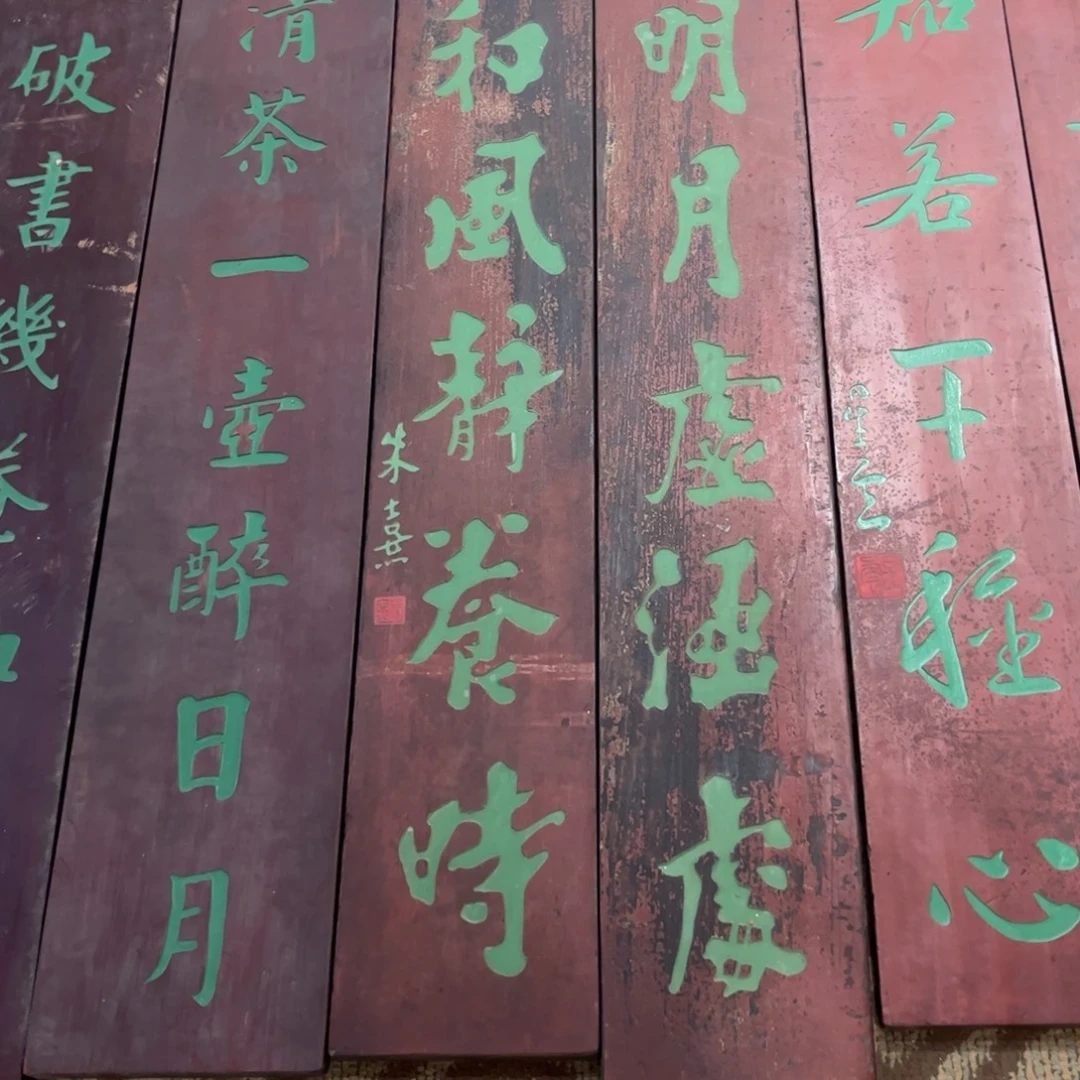 若干種心
星云
明月虛涵處
和風靜養時
朱熹
清茶一壺醉日月
破書幾卷